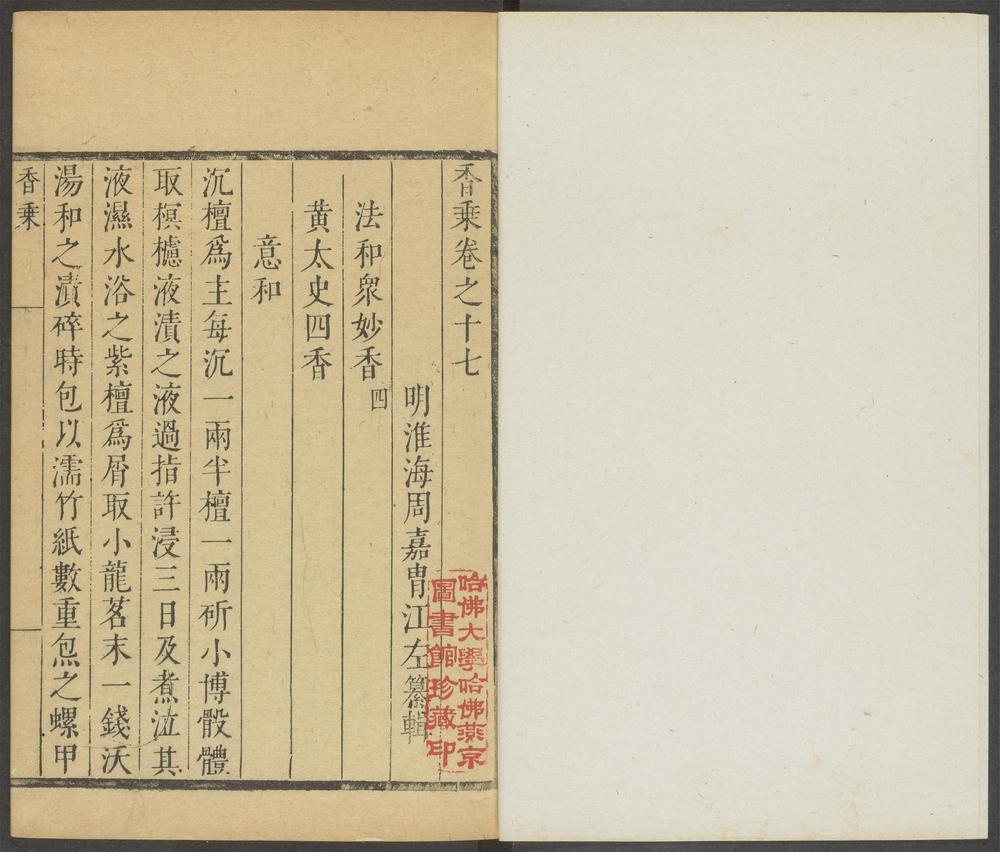 香乗卷之十七
明淮海周嘉胄江左纂輯
法和衆妙香四
黄太史四香
意和
沉檀爲主每沉一兩半檀一兩斫小博骰體
取榠樝液漬之液過指許浸三日及煮泣其
液濕水浴之紫檀爲屑取小龍茗末一錢沃
湯和之漬碎時包以濡竹紙數重炰之螺甲
香乗
哈佛大學哈佛燕京
圖書館珍藏印